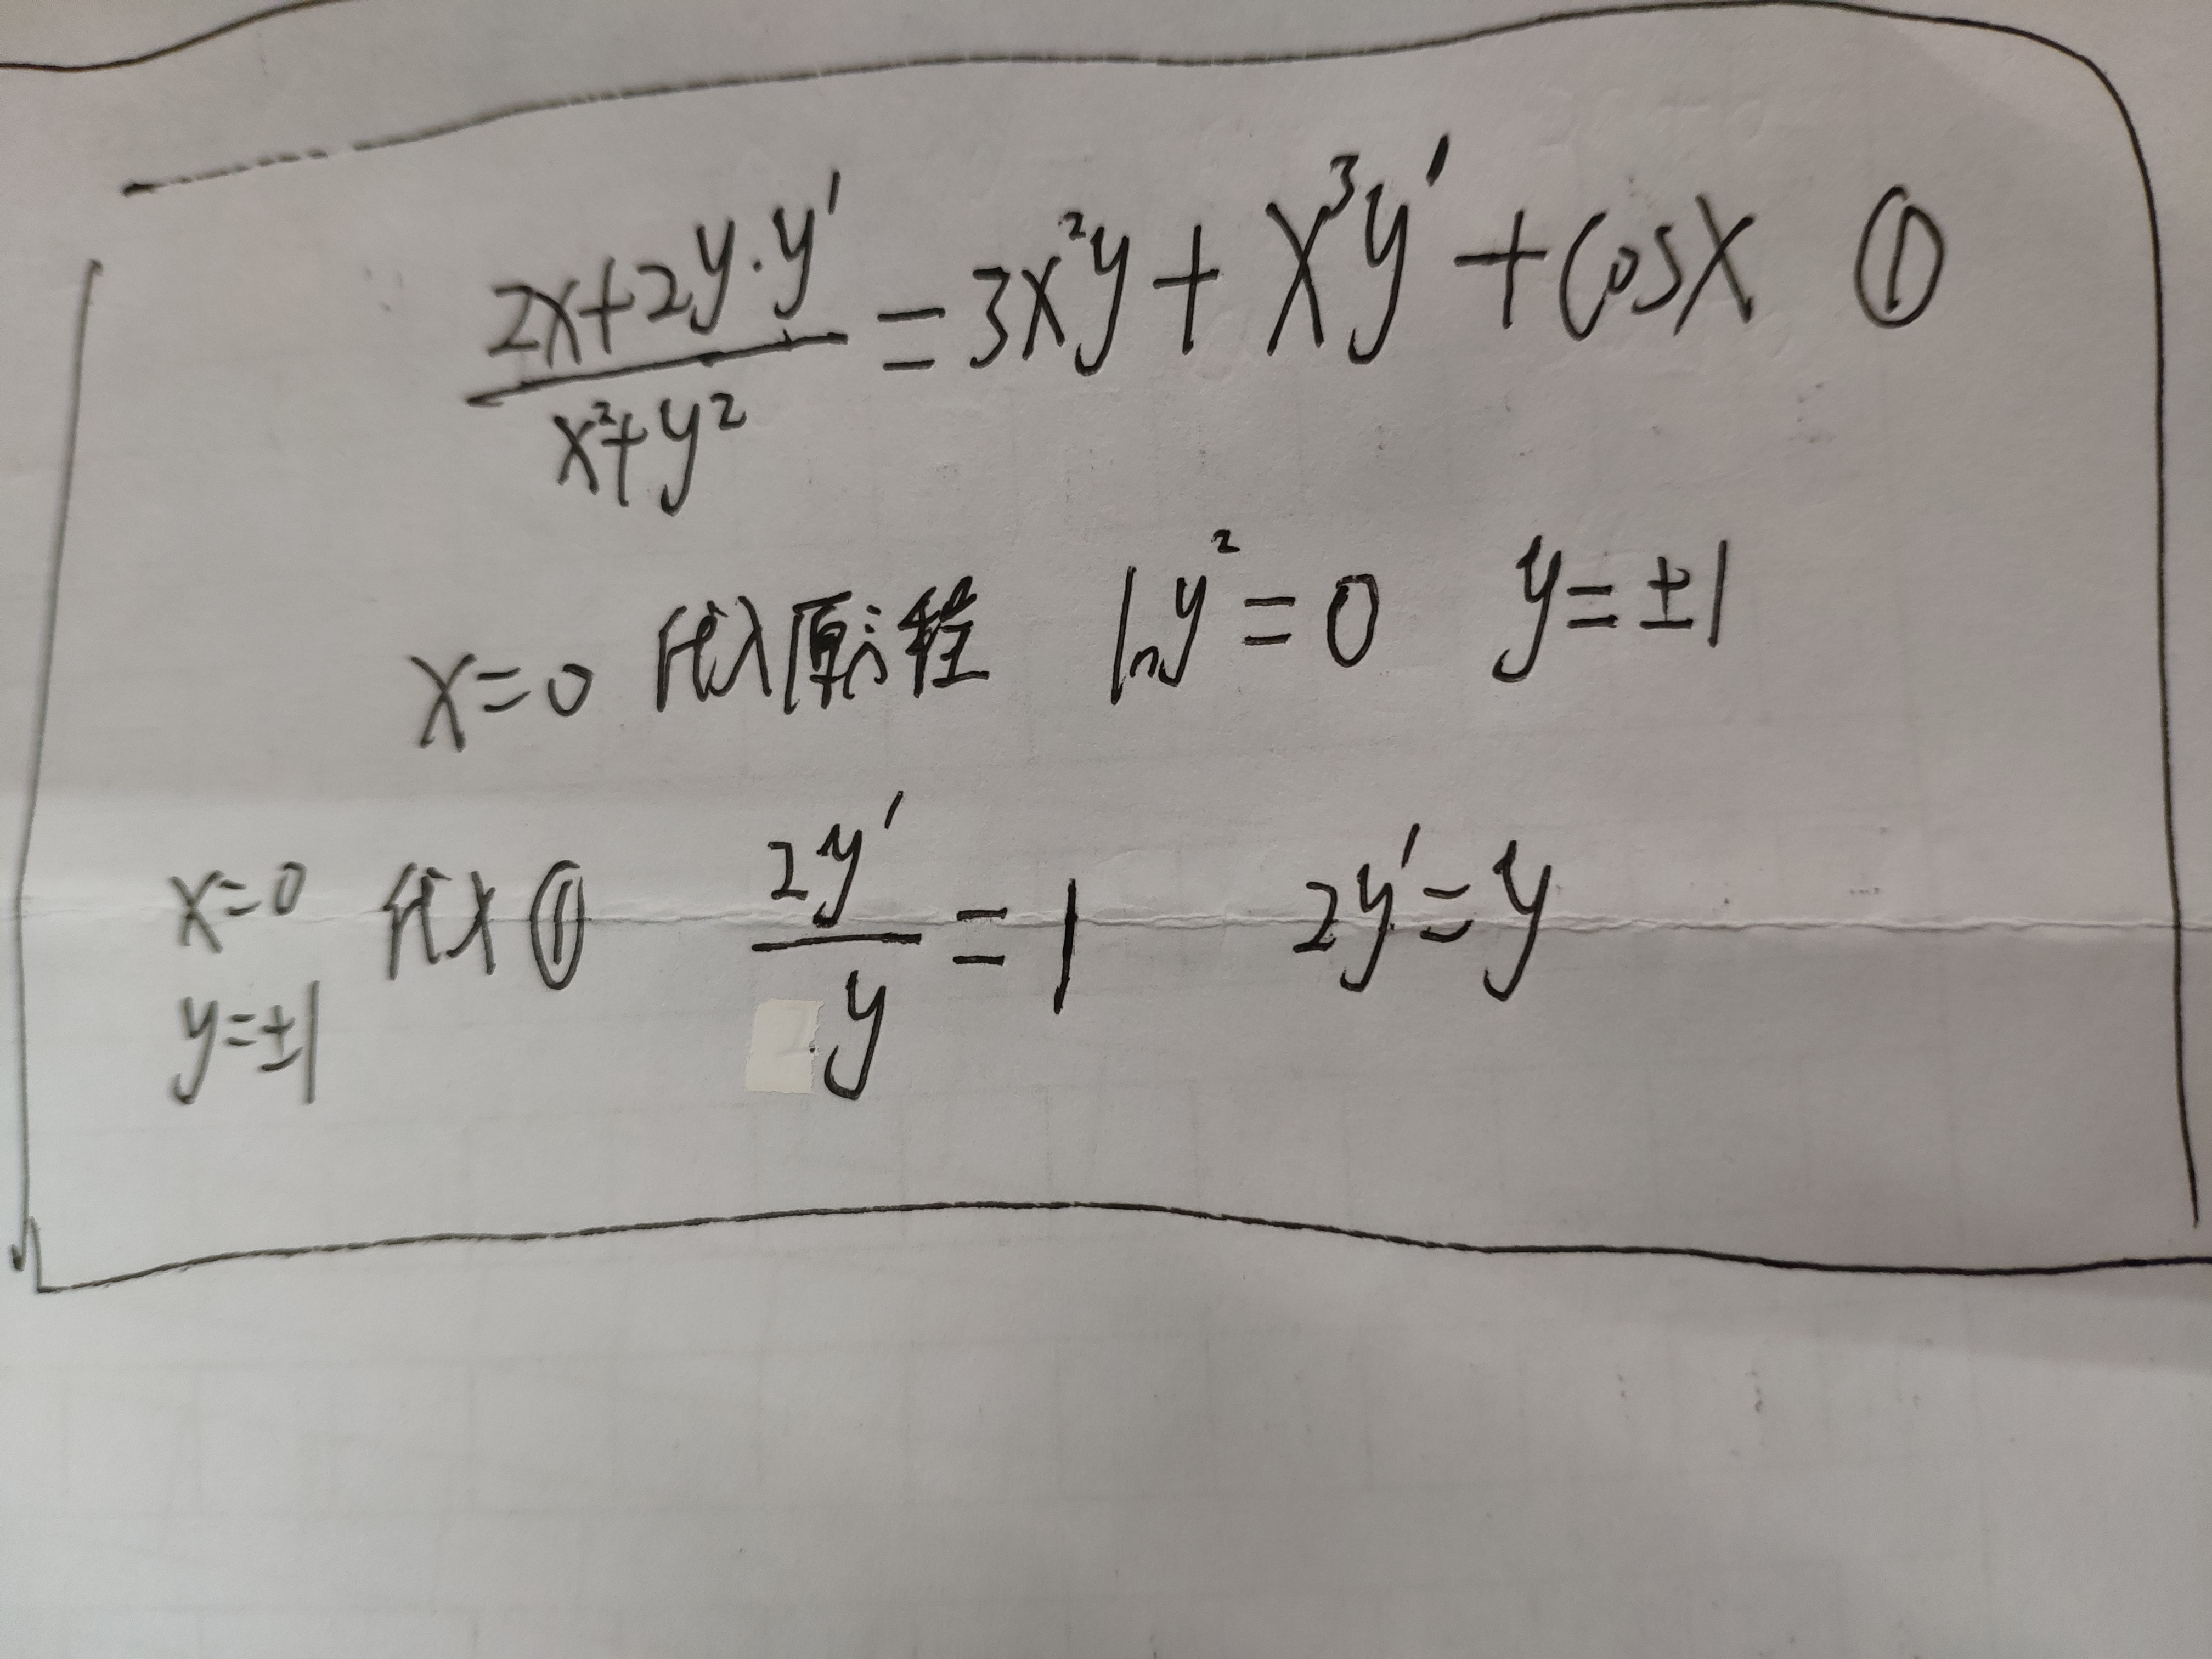 (2x+2y·y′)/(x²+y²) = 3x²y + x³y′ + cosx ①
x=0 代入原方程 lny²=0 y=±1
x=0 代入① 2y′/y = 1 2y′=y
y=±1